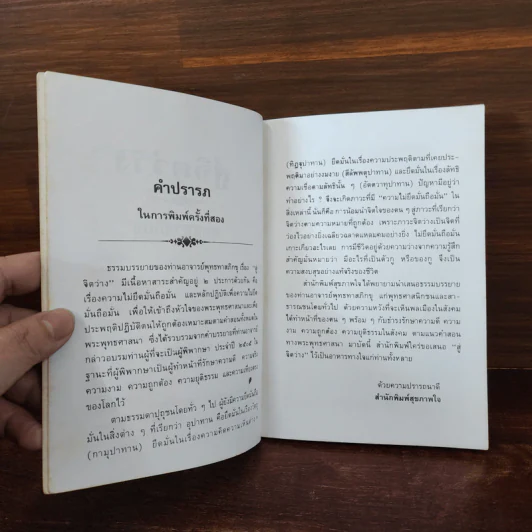 คำปรารภ
ในการพิมพ์ครั้งที่สอง
ธรรมบรรยายของท่านอาจารย์พุทธทาสภิกขุ เรื่อง "สู่
จิตว่าง" มีเนื้อหาสาระสำคัญอยู่ ๒ ประการด้วยกัน คือ
เรื่องความไม่ยึดมั่นถือมั่น และหลักปฏิบัติเพื่อความไม่ยึด
มั่นถือมั่น เพื่อให้เข้าถึงหัวใจของพระพุทธศาสนาและเพื่อ
ประพฤติปฏิบัติตนให้ถูกต้องเหมาะสมตามคำสอนทั้งหมดใน
พระพุทธศาสนา ซึ่งได้รวบรวมจากคำบรรยายที่ท่านอาจารย์
กล่าวอบรมท่านผู้ที่จะเป็นผู้พิพากษา ประจำปี
ฐานะที่ผู้พิพากษาเป็นผู้ทำหน้าที่รักษาความดี ความจริง
ความงาม ความถูกต้อง ความยุติธรรม และความเที่ยงตรง
ของโลกไว้
ตามธรรมดาปุถุชนโดยทั่ว ๆ ไป ผู้ยังมีความยึดมั่นถือ
มั่นในสิ่งต่าง ๆ ที่เรียกว่า อุปาทาน คือยึดมั่นในเรื่องวัตถุ
(กามุปาทาน) ยึดมั่นในเรื่องความคิดความเห็นต่าง ๆ
(ทิฏฐุปาทาน) ยึดมั่นในเรื่องความประพฤติตามที่เคยประ-
พฤติมาอย่างงมงาย (สีลัพพตุปาทาน) และยึดมั่นในเรื่องลัทธิ
ความเชื่อตามลัทธินั้น ๆ (อัตตวาทุปาทาน) ปัญหามีอยู่ว่า
ทำอย่างไร ? จึงจะเกิดภาวะที่มี "ความไม่ยึดมั่นถือมั่น" ใน
สิ่งเหล่านี้ นั่นก็คือ การน้อมนำจิตใจของตน ๆ สู่ภาวะที่เรียกว่า
จิตว่างตามความหมายที่ถูกต้อง เพราะภาวะจิตว่างเป็นจิตที่
ว่องไวอย่างยิ่งเฉลียวฉลาดแหลมคมอย่างยิ่ง ไม่ยึดมั่นถือมั่น
เกาะเกี่ยวอะไรเลย การมีชีวิตอยู่ด้วยความว่างจากความรู้สึก
สำคัญมั่นหมายว่า มีอะไรที่เป็นตัวกู หรือของกู จึงเป็น
ความสงบสุขอย่างแท้จริงของชีวิต
สำนักพิมพ์สุขภาพใจ ได้พยายามนำเสนอธรรมบรรยาย
ของท่านอาจารย์พุทธทาสภิกขุ แก่พุทธศาสนิกชนและสา-
ธารณชนโดยทั่วไป ด้วยความหวังที่จะเห็นพลเมืองในสังคม
ได้ทำหน้าที่ของตน ๆ พร้อม ๆ กับธำรงรักษาความดี ความ
งาม ความถูกต้อง ความยุติธรรมในสังคม ตามแนวคำสอน
ทางพระพุทธศาสนา มาบัดนี้ สำนักพิมพ์ใคร่ขอเสนอ "สู่
จิตว่าง" ไว้เป็นอาหารทางใจแก่ท่านทั้งหลาย
ด้วยความปรารถนาดี
สำนักพิมพ์สุขภาพใจ